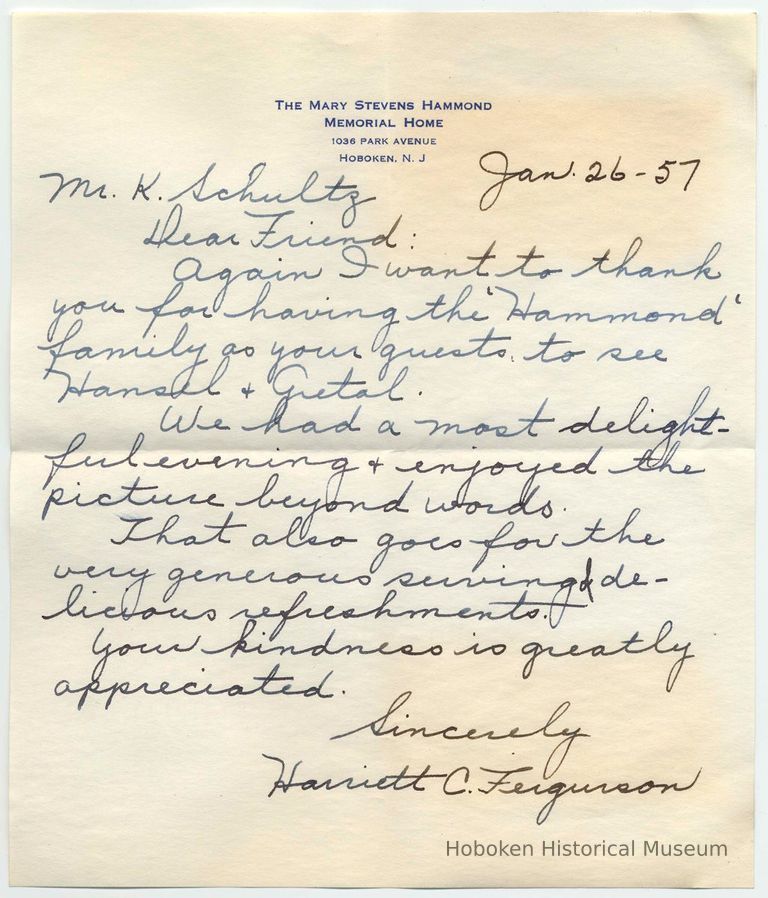 THE MARY STEVENS HAMMOND
MEMORIAL HOME
1036 PARK AVENUE
HOBOKEN, N. J
Jan. 26-57
Mr. K. Schultz
Dear Friend:
Again I want to thank
you for having the 'Hammond'
family as your guests, to see
Hansel & Gretal.
We had a most delight-
ful evening & enjoyed the
picture beyond words.
That also goes for the
very generous serving of de-
licious refreshments.
Your kindness is greatly
appreciated.
Sincerely
Harriett C. Ferguson
Hoboken Historical Museum